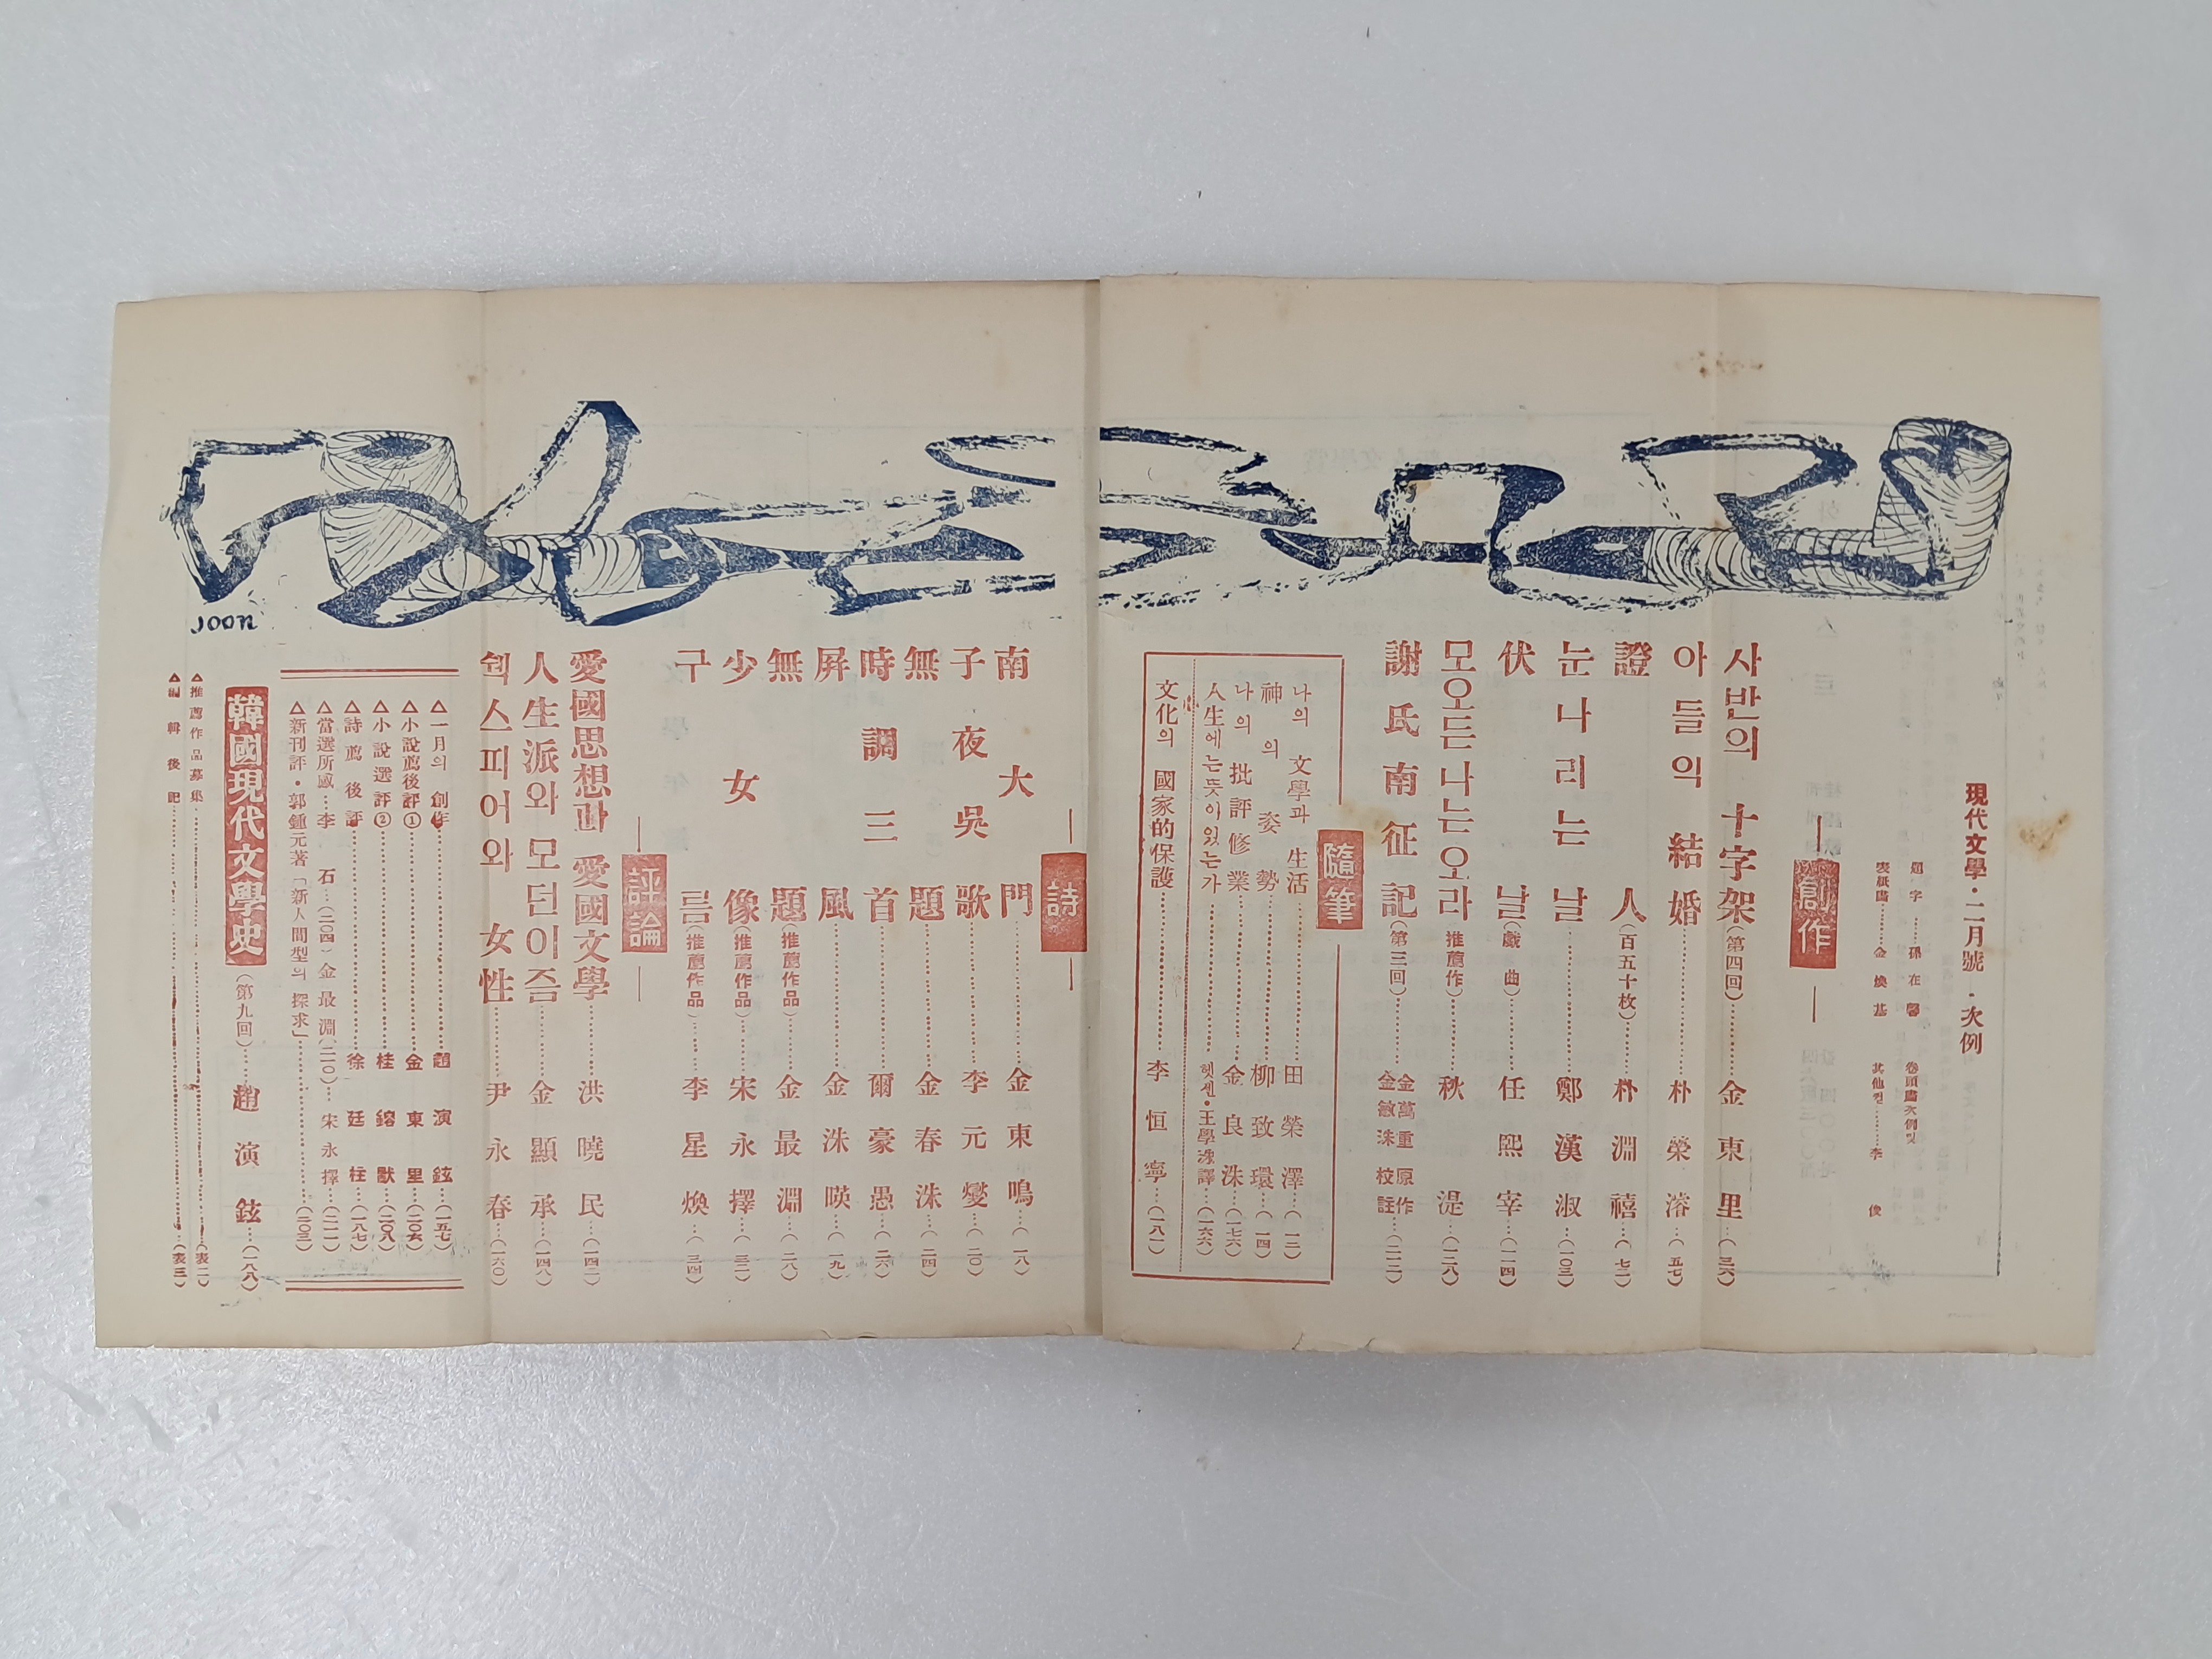 現代文學・二月號・次例
題字……孫在馨 卷頭畵次例및
表紙畵……金煥基 其他컷……李俊
創作
사반의 十字架(第四回)……金東里…(三六)
아들의 結婚……朴榮濬…(五七)
證人(百五十枚)……朴淵禧…(七二)
눈나리는날……鄭漢淑…(一〇三)
伏날(戱曲)……任熙宰…(一一四)
모오든나는오라(推薦作)……秋湜…(一二八)
謝氏南征記(第三回)……金萬重原作 金敏洙校註…(二一二)
隨筆
나의 文學과 生活……田榮澤…(一三)
神의 姿勢……柳致環…(一四)
나의 批評修業……金良洙…(一七六)
人生에는뜻이있는가……헷센・王學洙譯…(一六六)
文化의 國家的保護……李恒寧…(一八一)
詩
南大門……金東鳴…(一八)
子夜吳歌……李元燮…(二〇)
無題……金春洙…(二四)
時調三首……爾豪愚…(二六)
屛風……金洙暎…(一九)
無題(推薦作品)……金最淵…(二八)
少女像(推薦作品)……宋永擇…(三二)
구름(推薦作品)……李星煥…(三四)
評論
愛國思想과 愛國文學……洪曉民…(一四二)
人生派와모던이즘……金顯承…(一四八)
쉑스피어와 女性……尹永春…(一六〇)
△一月의 創作……趙演鉉…(一五七)
△小說薦後評①……金東里…(二〇六)
△小說選評②……桂鎔默…(二〇八)
△詩薦後評……徐廷柱…(一八七)
△當選所感…李石…(二〇四) 金最淵(二一〇)…宋永擇…(二一一)
△新刊評・郭鍾元著「新人間型의 探求」……(二〇三)
韓國現代文學史(第九回)……趙演鉉…(一八八)
△推薦作品募集……(表二)
△編輯後記……(表三)
JOON